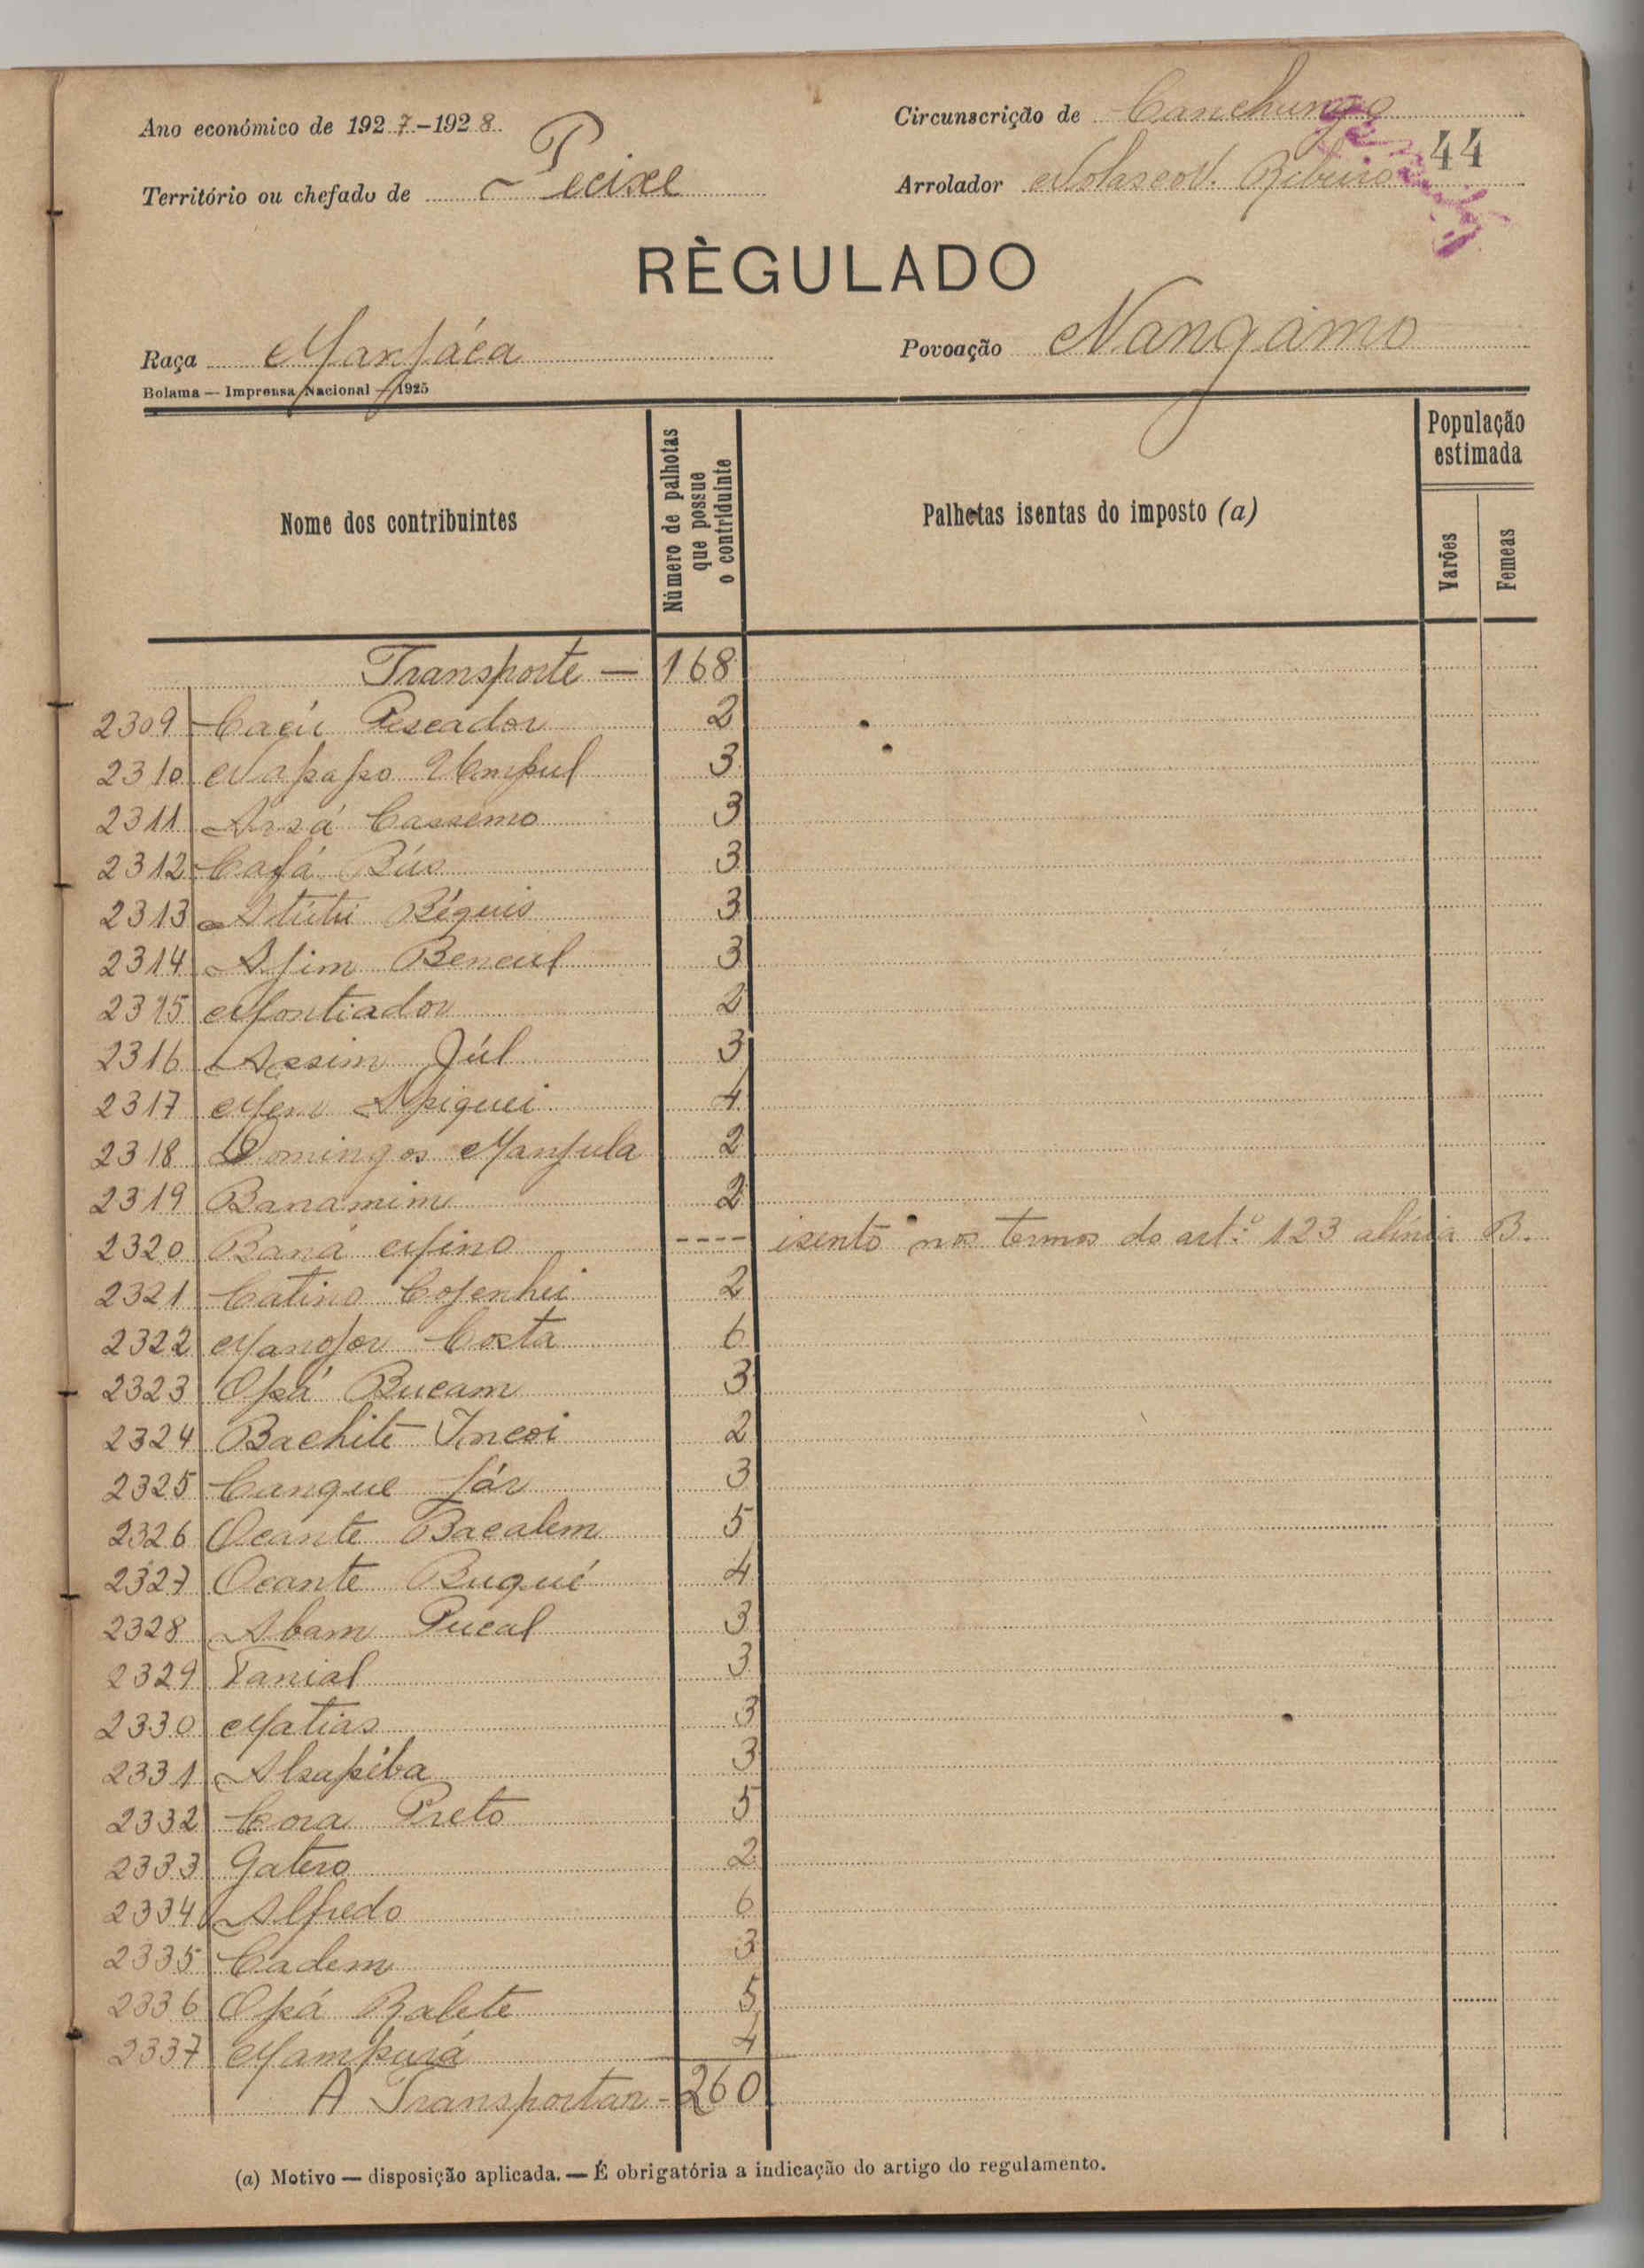 Ano económico de 1927-1928.
Circunscrição de Canchungo
44
Território ou chefado de Pecixe
Arrolador Nolasco V. Ribeiro
RÈGULADO
Raça Manjáca
Povoação Nangámo
Bolama — Imprensa Nacional — 1925
Nome dos contribuintes
Número de palhotas que possue o contriduinte
Palhetas isentas do imposto (a)
População estimada
Varões
Femeas
Transporte — 168
2309 Caéu Pescador 2
2310 Napapo Umpul 3
2311 Arsá Cassemo 3
2312 Cafá Bús 3
2313 Atútú Béquis 3
2314 Ajim Beneul 3
2315 Montiador 2
2316 Assim Júl 3
2317 Men Apiquei 4
2318 Domingos Manjula 2
2319 Banamim 2
2320 Baná Mino ---- isento nos termos do artº 123 alínia B.
2321 Catino Cojenhei 2
2322 Manojor Costa 6
2323 Opá Bucam 3
2324 Bachite Incoi 2
2325 Cangue Jár 3
2326 Ocante Bacalem 5
2327 Ocante Buqué 4
2328 Abam Pucal 3
2329 Tanial 3
2330 Matias 3
2331 Alsapéba 3
2332 Cora Preto 5
2333 Gatero 2
2334 Alfredo 6
2335 Cadem 3
2336 Opá Balete 5
2337 Mampusá 4
A Transportar - 260
(a) Motivo — disposição aplicada. — É obrigatória a indicação do artigo do regulamento.